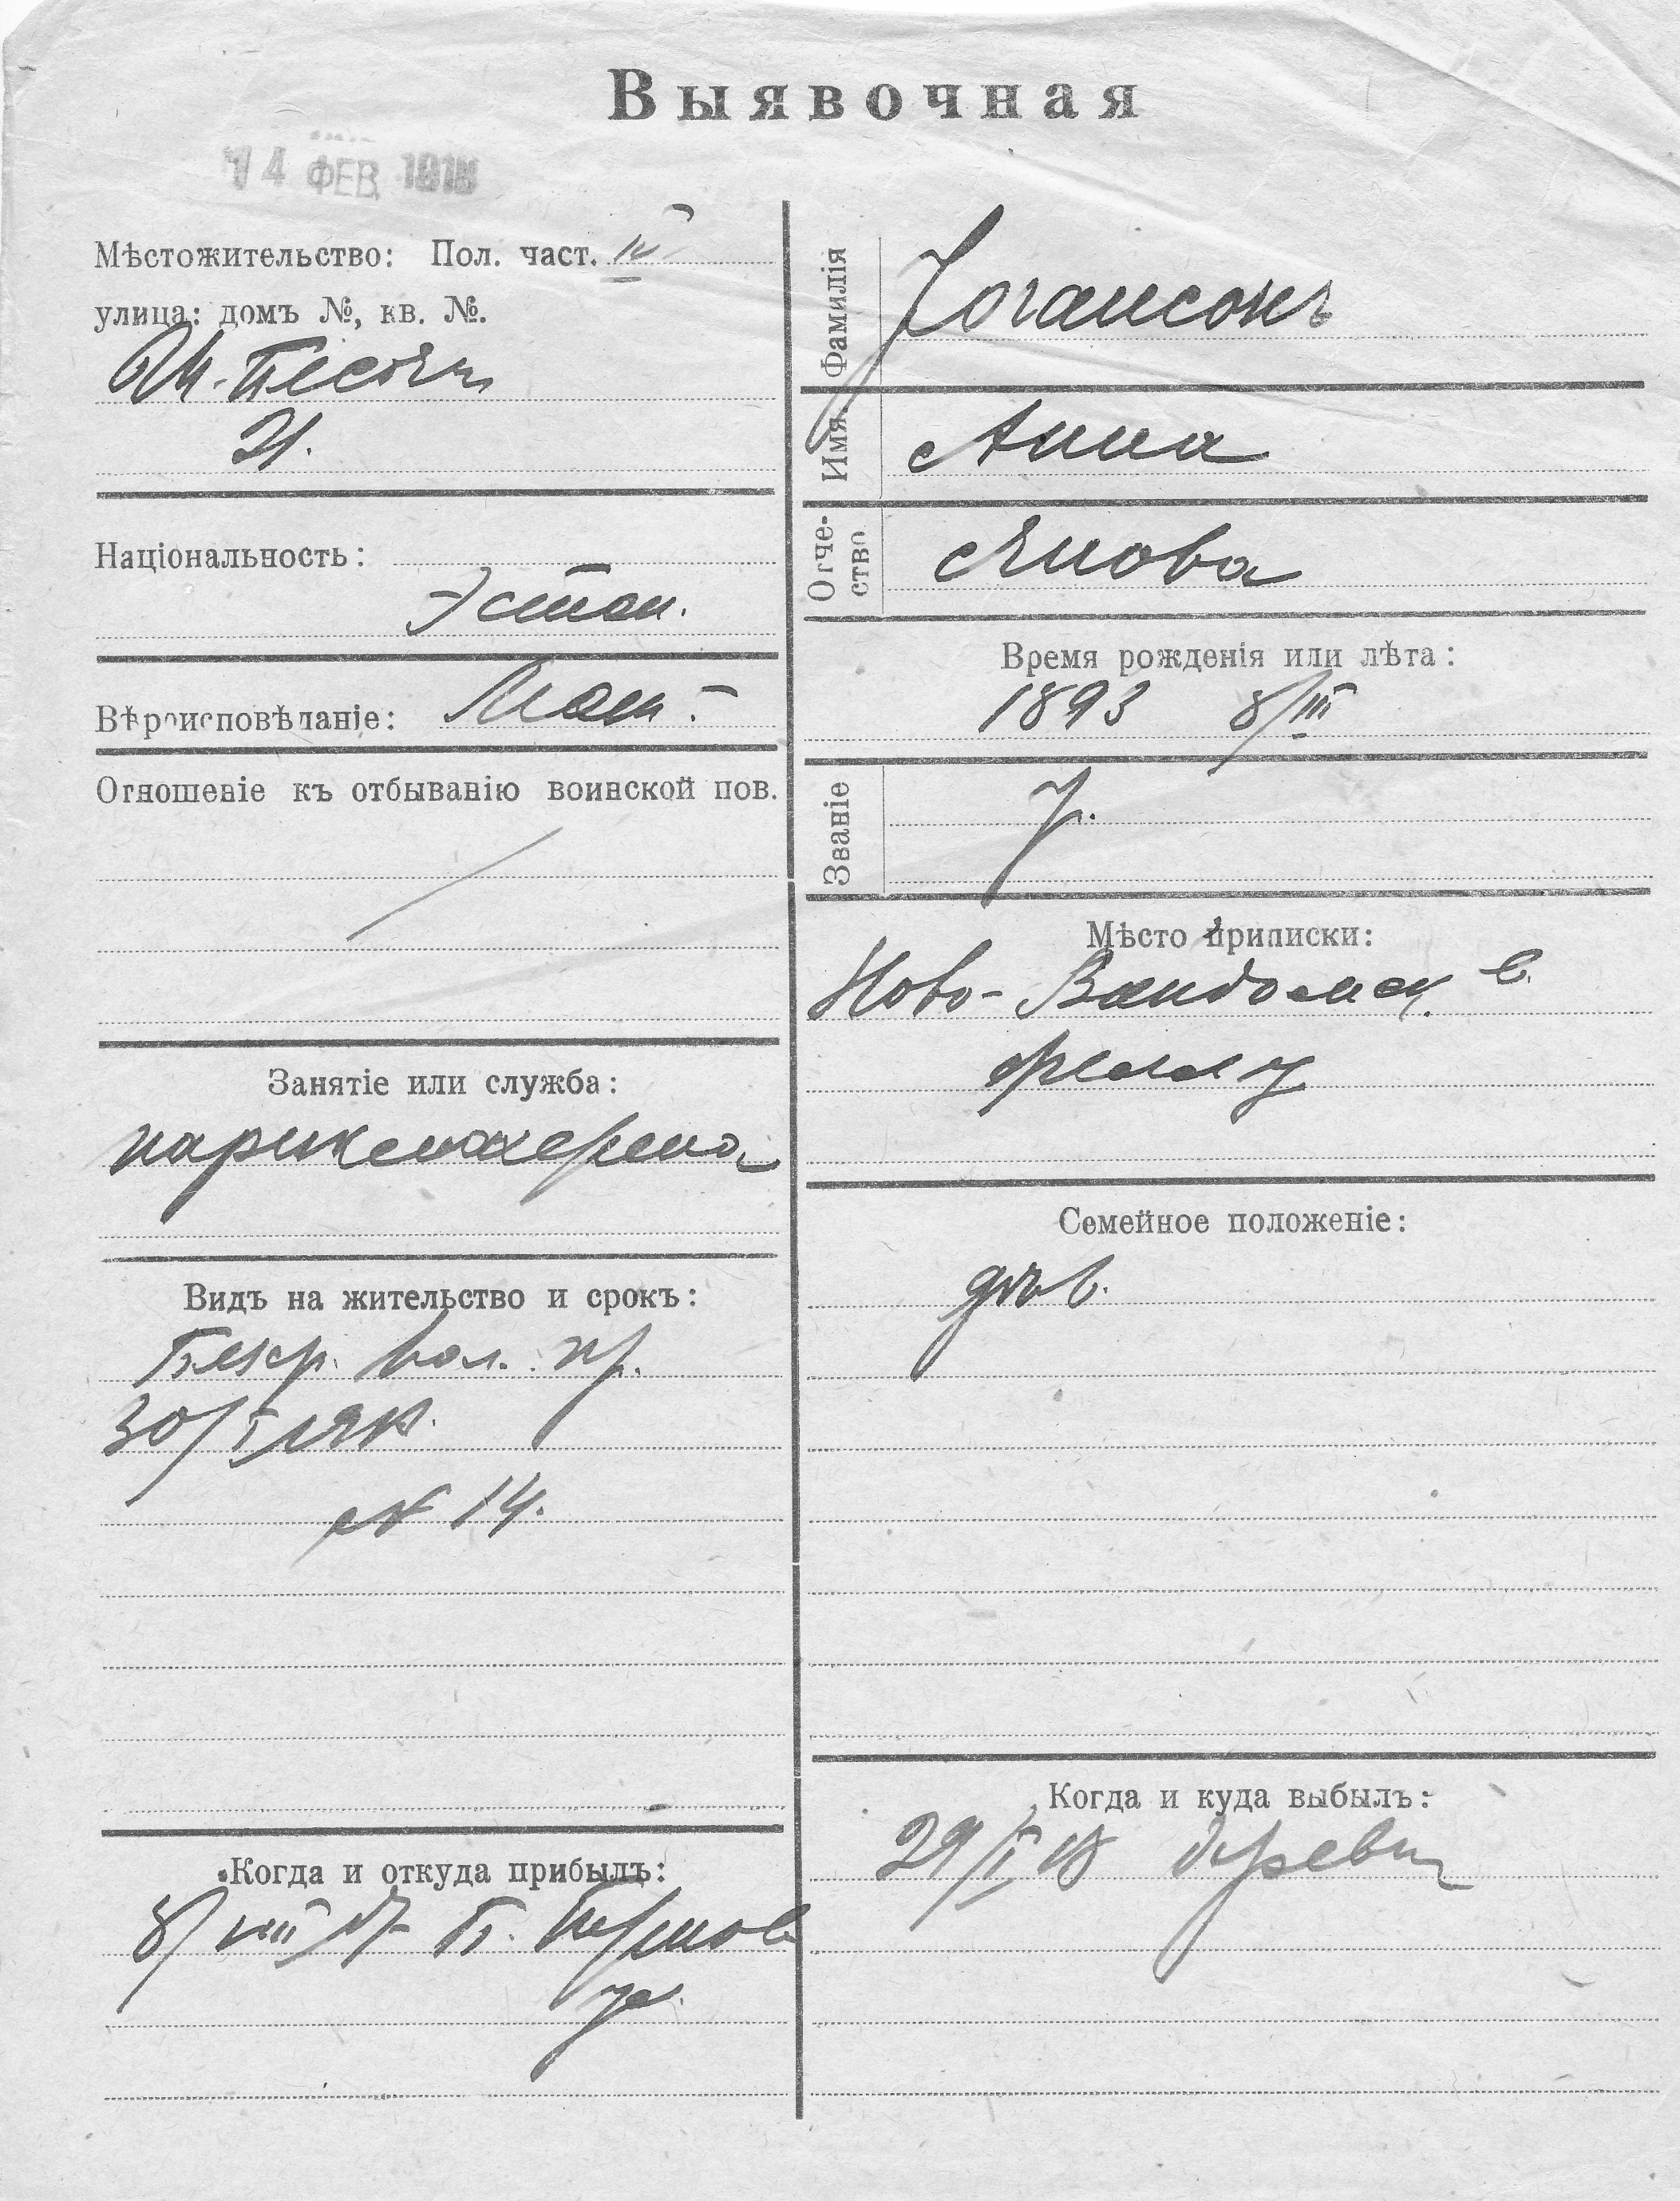 Выявочная
14 ФЕВ 1918
Мѣстожительство: Пол. част. IV
улица: домъ №, кв. №.
21.
Національность:
Эстон.
Вѣроисповѣданіе:
Отношеніе къ отбыванію воинской пов.
Занятіе или служба:
парикмахерша
Видъ на жительство и срокъ:
Безср. вол. пр.
30/I
№ 14.
Когда и откуда прибылъ:
8/VIII 17 Пернов
у.
Фамилія
Іогансонъ
Имя
Анна
Отчество
Янова
Время рожденія или лѣта:
1893 8/III
Званіе
Мѣсто приписки:
Ново- в.
Семейное положеніе:
дѣв.
Когда и куда выбылъ:
29/I 18